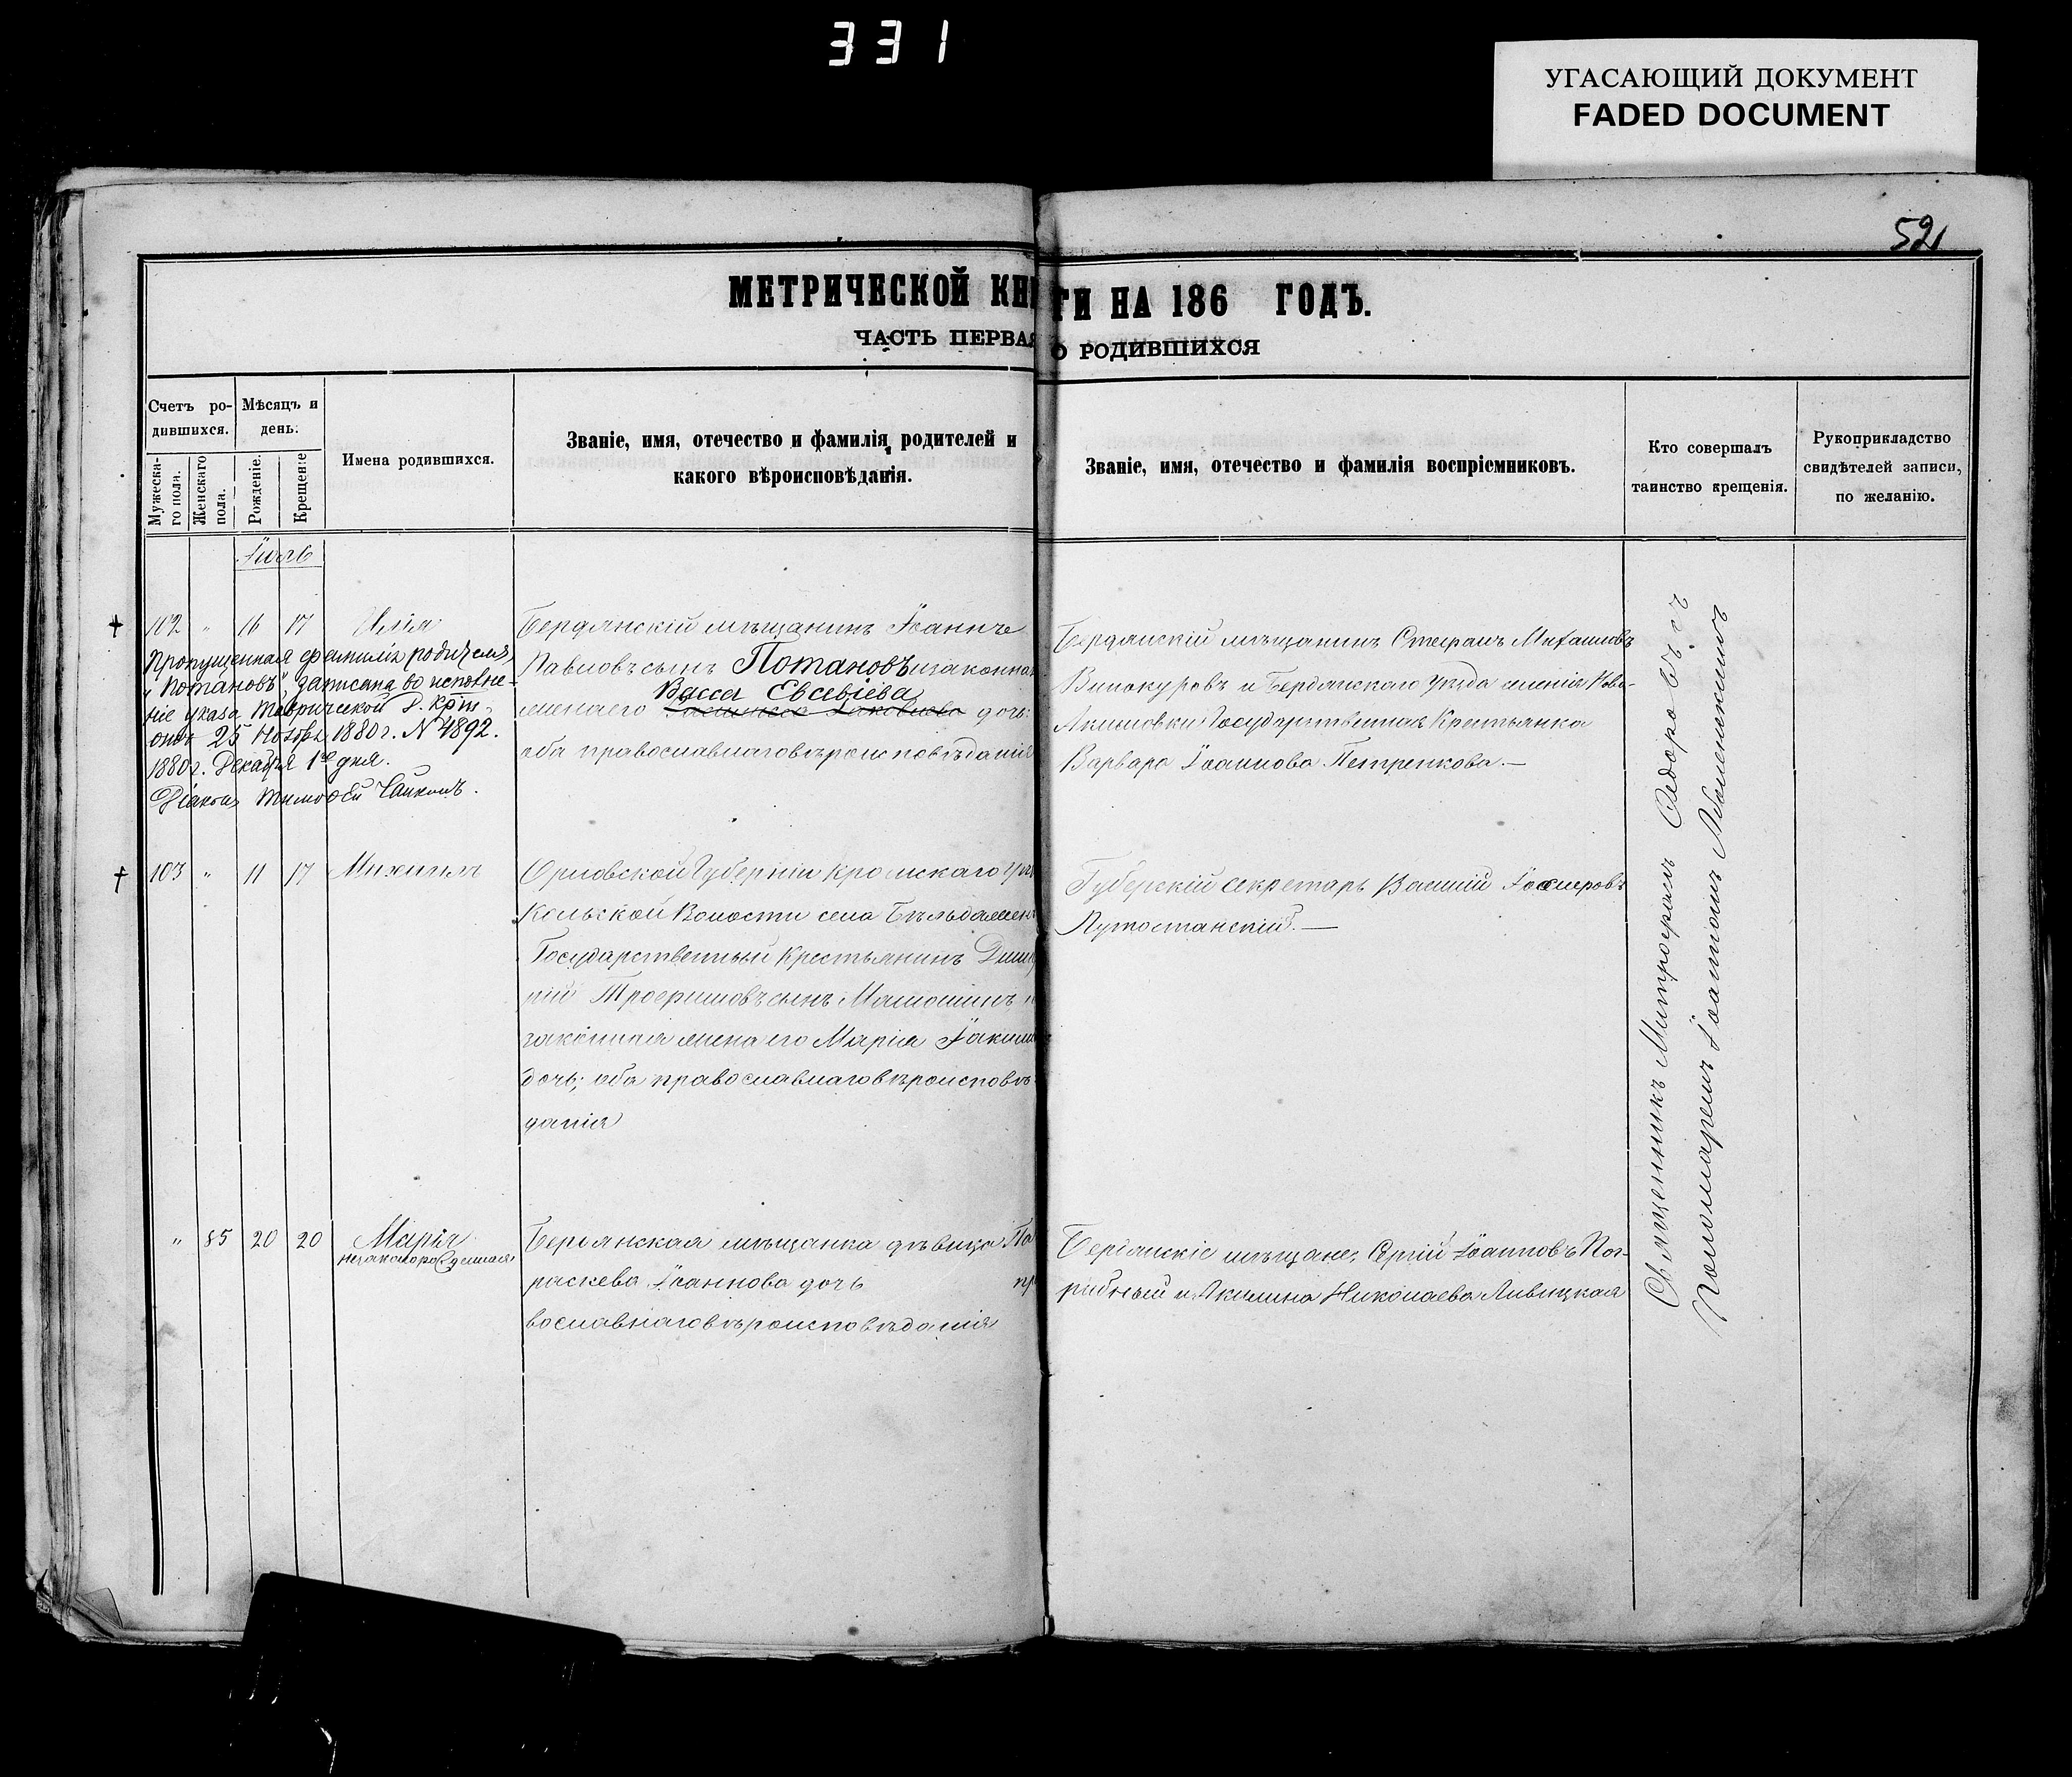 331
УГАСАЮЩИЙ ДОКУМЕНТ
FADED DOCUMENT
52
МЕТРИЧЕСКОЙ КНИГИ НА 186 ГОДЪ.
ЧАСТЬ ПЕРВАЯ О РОДИВШИХСЯ
Счетъ ро-
дившихся.
Мужеска-
го пола.
Женскаго
пола.
Мѣсяцъ и
день.
Рожденіе.
Крещеніе
Имена родившихся.
Званіе, имя, отечество и фамилія родителей и
какого вѣроисповѣданія.
Званіе, имя, отечество и фамилія воспріемниковъ.
Кто совершалъ
таинство крещенія.
Рукоприкладство
свидѣтелей записи,
по желанію.
Іюль
102 " 16 17 Илія
Пропущенная фамилія родителя,
"Потановъ", записана во исполне-
ніе указа Таврической Д.
25 Ноября 1880 г. № 4892.
1880 г. Декабря 1го дня.
Діаконъ Тимоѳей
Бердянскій мѣщанинъ Іоаннъ
Павловъ сынъ Потановъ и законная
Васса Евсевіева
жена его дочь:
оба православнаго вѣроисповѣданія
Бердянскій мѣщанинъ Стефанъ Михаиловъ
Винокуровъ и Бердянскаго уѣзда имѣнія Ново-
Акимовки Государственная Крестьянка
Варвара Іоаннова Петренкова.—
103 " 11 17 Михаилъ
Орловской Губерніи Кромскаго уѣз
Кольской Волости села
Государственный Крестьянинъ Дими
трій Трофимовъ сынъ и
законная жена его Марія Іакима
дочь; оба православнаго вѣроисповѣ-
данія
Губерскій Секретарь Василій
—
" 85 20 20 Марія
незаконорожденная
Бердянская мѣщанка дѣвица Па
раскева Іоаннова дочь пра
вославнаго вѣроисповѣданія
Бердянскіе мѣщане, Сергій Іоанновъ Пог-
рибный и Акилина Николаева Ливицкая
Священникъ Митрофанъ Сидоровъ съ
Пономаремъ Іоанномъ